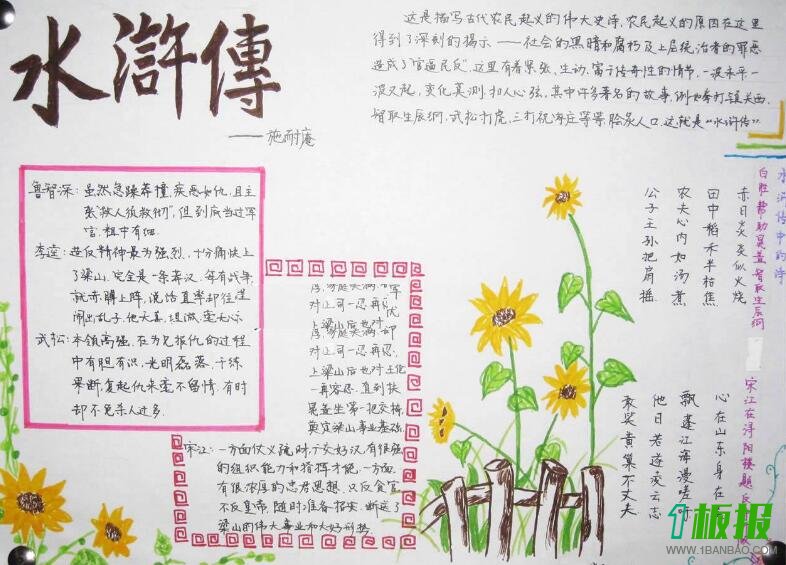 水滸傳
——施耐庵
这是描写古代农民起义的伟大史诗,农民起义的原因在这里
得到了深刻的揭示——社会的黑暗和腐朽及上层统治者的罪恶
造成了"官逼民反",这里有着紧张、生动、富于传奇性的情节,一波未平一
波又起,变化莫测,扣人心弦,其中许多著名的故事,例如拳打镇关西,
智取生辰纲,武松打虎,三打祝家庄等等,脍炙人口,这就是"水浒传"
鲁智深:虽然急躁莽撞,疾恶如仇,且主
张"救人须救彻",但到底当过军
官,粗中有细.
李逵:造反精神最为强烈,十分痛快上
了梁山,完全是一条莽汉,每有战事,
就赤膊上阵,说话直率却往往
闹出乱子,他大喜
武松:本领高强,在为兄报仇的过程
中有胆有识,光明磊落,干练
果断,复起仇来毫不留情,有时
却不免杀人过多.
对上司一忍再忍
上梁山后也对
对上司一忍再忍,
上梁山后也对王伦
一再容忍,直到扶
晁盖坐第一把交椅,
奠定梁山事业基础.
宋江:一方面仗义疏财,广交好汉,有很强
的组织能力和指挥才能,一方面
有很浓厚的忠君思想,只反贪官
不反皇帝,随时准备招安,断送了
梁山的伟大事业和大好形势
水浒传中的诗
白胜帮助晁盖智取生辰纲
赤日炎炎似火烧
田中稻禾半枯焦
农夫心内如汤煮
公子王孙把扇摇
宋江在浔阳楼题反
心在山东身在
飘蓬江海漫嗟吁
他日若遂凌云志
敢笑黄巢不丈夫
1板报
WWW.1BANBAO.COM